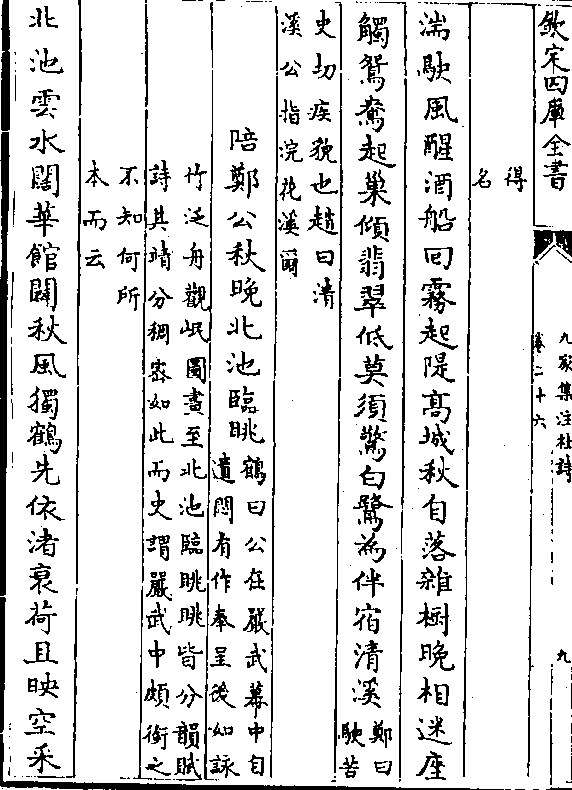 欽定四庫全書
九家集注杜詩
卷二十六
九
得
名
湍駛風醒酒船回霧起隄高城秋自落雜樹晚相迷座
觸鴛鴦起巢傾翡翠低莫須驚白鷺為伴宿清溪
鄭曰
駛苦
史切疾貌也趙曰清
溪公指浣花溪爾
陪鄭公秋晚北池臨眺
鶴曰公在嚴武幕中自
遣悶有作奉呈後如詠
竹泛舟觀岷圖畫至北池臨眺眺皆分韻賦
詩其情分稠密如此而史謂嚴武中頗銜之
不知何所
本而云
北池雲水闊華館闢秋風獨鶴先依渚衰荷且映空采